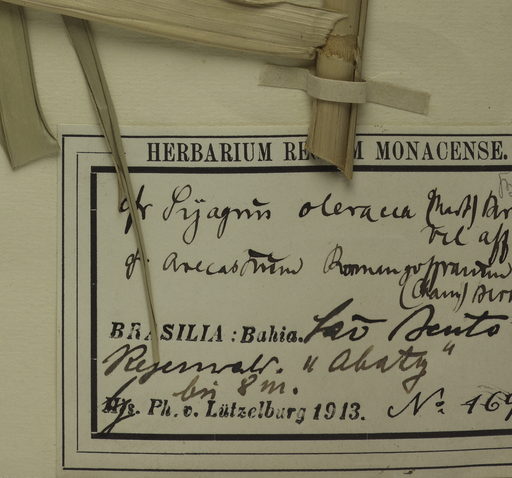 HERBARIUM REGIUM MONACENSE.
cfr Syagrus oleracea (Mart)
vel aff
cfr. Arecastrum Romanzoffianum
(Cham)
BRASILIA: Bahia. São Bento
Regenwald. "Abaty"
bis 8 m.
Ph. v. Lützelburg 1913. No. 469